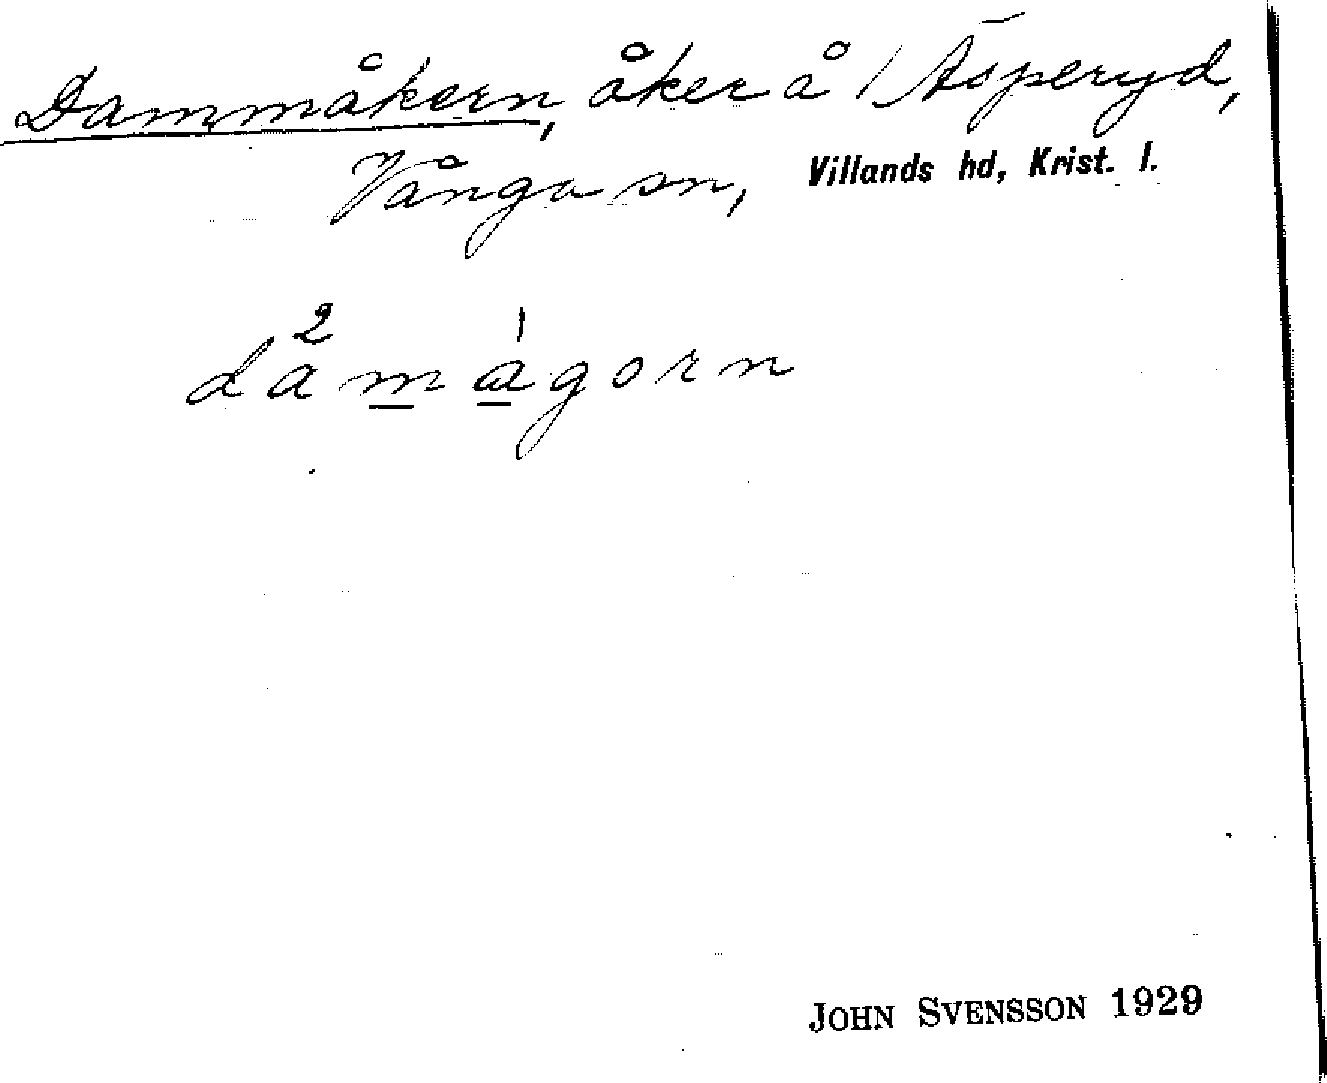 Dammåkern, åker å 1 Äsperyd,
Vånga sn, Villands hd, Krist. l.
JOHN SVENSSON 1929